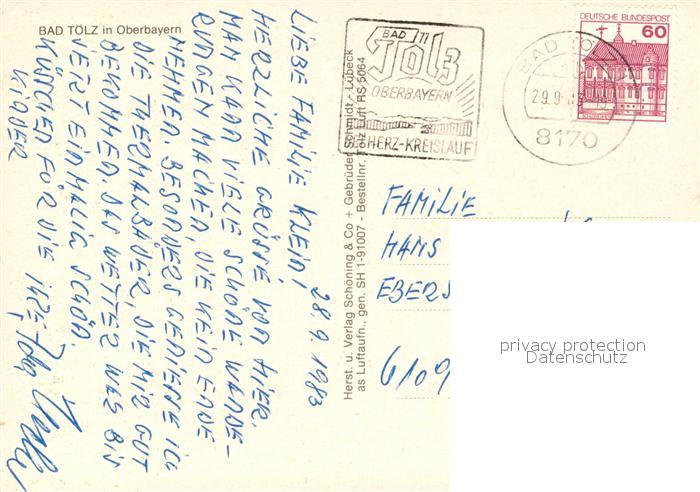 BAD TÖLZ in Oberbayern
28 9. 1983
LIEBE FAMILIE KLEIN!
HERZLICHE GRÜSSE VON HIER.
MAN KANN VIELE SCHÖNE WANDE-
RUNGEN MACHEN, DIE KEIN ENDE
NEHMEN. BESONDERS GENIEßE ICH
DIE THERMALBÄDER, DIE MIR GUT
BEKOMMEN. DAS WETTER WAR BIS
JETZT EINMALIG SCHÖN.
KÜSSCHEN FÜR DIE
KINDER
Herst. u. Verlag Schöning & Co + Gebrüder Schmidt - Lübeck
as Luftaufn., gen. SH 1-91007 - Bestellnr. Tölz Luft RS 5064
BAD
Tölz
OBERBAYERN
HERZ-KREISLAUF
BAD TÖ
29.9.83
8170
DEUTSCHE BUNDESPOST
60
FAMILIE
HANS
EBERS
6109
privacy protection
Datenschutz